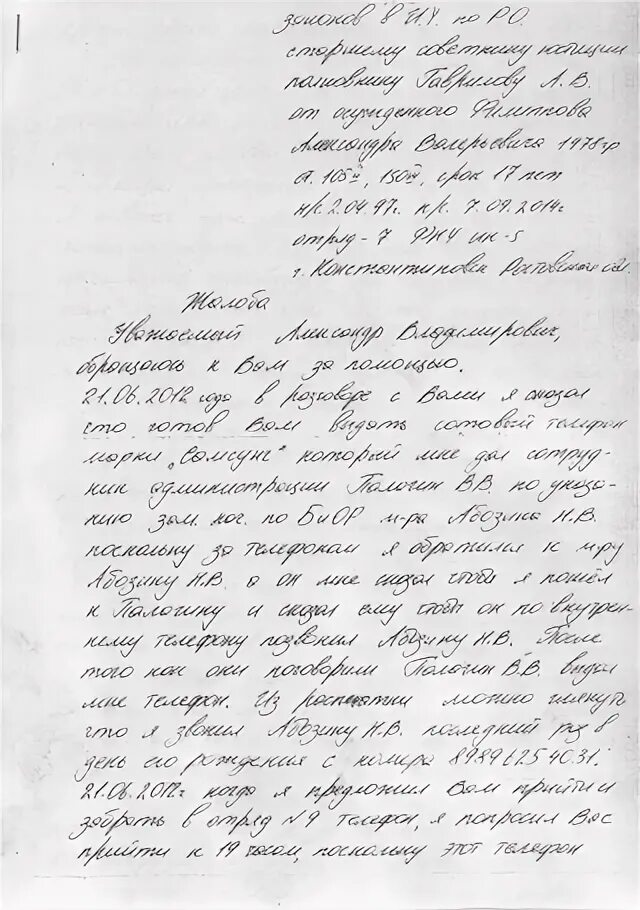 законов в И.У. по РО.
старшему советнику юстиции
полковнику Гаврилову А.В.
от осужденного Филиппова
Александра Валерьевича 1978гр
ст. 105 , 150 , срок 17 лет
н/с. 2.04.97г. к/с. 7.09.2014г
отряд-7 ФКУ ик-5
г. Константиновск Ростовской обл.
Жалоба
Уважаемый Александр Владимирович,
обращаюсь к Вам за помощью.
21.06.2012 года в разговоре с Вами я сказал
что готов Вам выдать сотовый телефон
марки „Самсунг" который мне дал сотруд-
ник администрации Палагин В.В. по указа-
нию зам. нач. по БиОР м-ра Абозина Н.В.
поскольку за телефоном я обратился к м-ру
Абозину Н.В. а он мне сказал чтобы я пошёл
к Палагину и сказал ему чтобы он по внутрен-
нему телефону позвонил Абозину Н.В. После
того как они поговорили Палагин В.В. выдал
мне телефон. Из распечатки можно глянуть
что я звонил Абозину Н.В. последний раз в
день его рождения с номера 89896254031.
21.06.2012г когда я предложил Вам прийти и
забрать в отряд №9 телефон, я попросил Вас
прийти к 19 часам, поскольку этот телефон